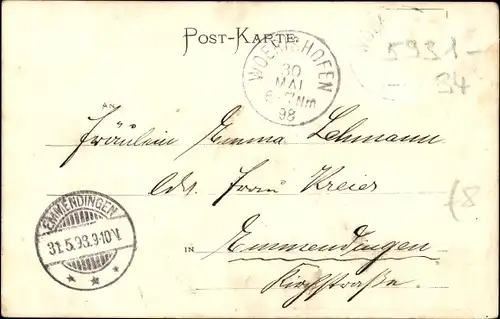 POST-KARTE.
WOERISHOFEN
30
MAI
6-7Nm
98
5931-
34
AN
Fräulein Emma Lehmann
Adr. Frau Kreier
(8
EMMENDINGEN
31.5.98.9-10V.
* * *
IN Emmendingen
Kirchstraße.